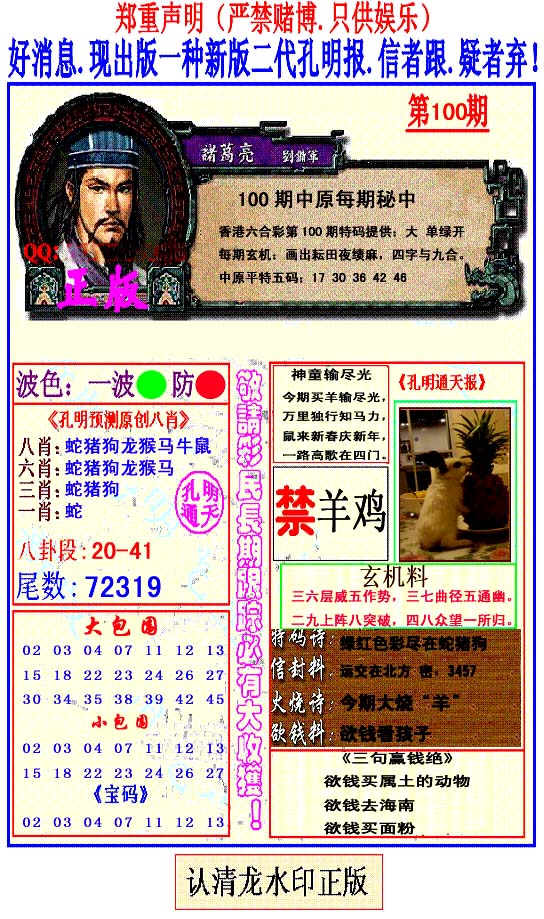 郑重声明（严禁赌博.只供娱乐）
好消息.现出版一种新版二代孔明报.信者跟.疑者弃!
第100期
諸葛亮 劉備軍
100 期中原每期秘中
香港六合彩第 100 期特码提供：大 单绿开
每期玄机：画出耘田夜绩麻，四字与九合。
中原平特五码：17 30 36 42 46
QQ:
正版
波色：一波 防
《孔明预测原创八肖》
八肖: 蛇猪狗龙猴马牛鼠
六肖: 蛇猪狗龙猴马
三肖: 蛇猪狗
一肖: 蛇
孔明
通天
八卦段: 20-41
尾数: 72319
大包围
02 03 04 07 11 12 13
15 18 22 23 24 26 27
30 34 35 38 39 42 45
小包围
02 03 04 07 11 12 13
15 18 22 23 24 26 27
《宝码》
02 03 04 07 11 12 13
敬請彩民長期跟踪必有大收獲！
神童输尽光
今期买羊输尽光，
万里独行知马力，
鼠来新春庆新年，
一路高歌在四门。
《孔明通天报》
禁羊鸡
玄机料
三六层威五作势，三七曲径五通幽。
二九上阵八突破，四八众望一所归。
特码诗: 绿红色彩尽在蛇猪狗
信封料: 运交在北方 密，3457
火烧诗: 今期大烧“羊”
欲钱料: 欲钱看孩子
《三句赢钱绝》
欲钱买属土的动物
欲钱去海南
欲钱买面粉
认清龙水印正版